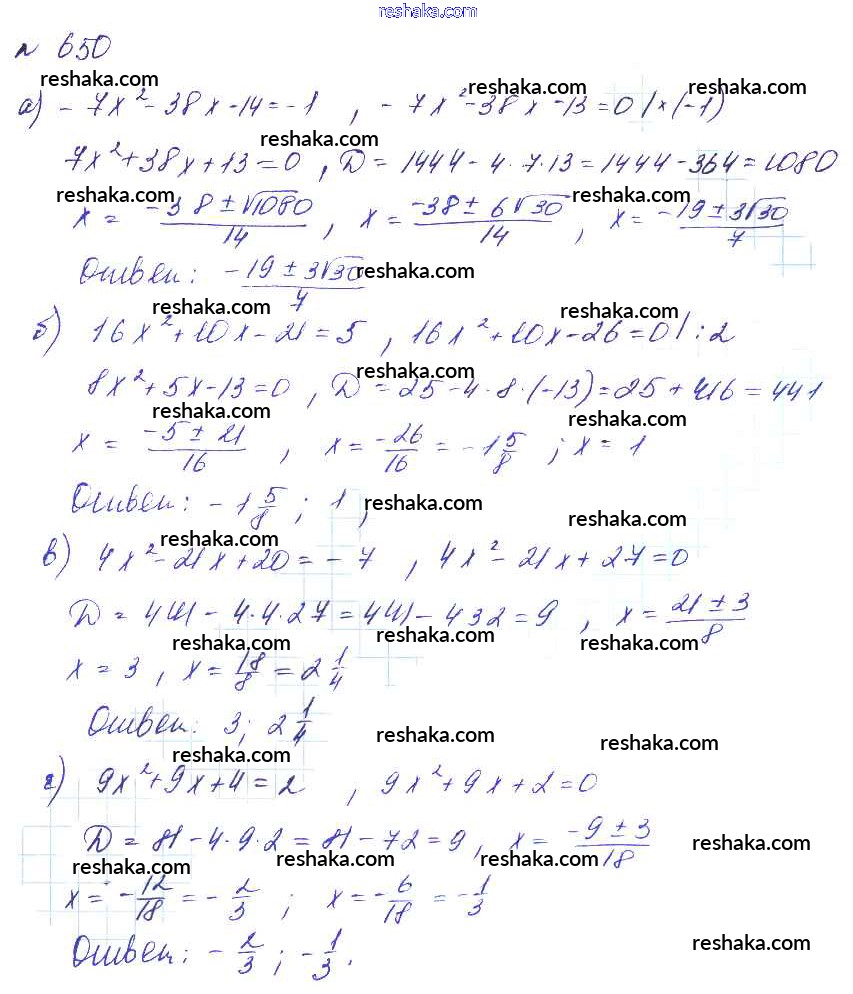 reshaka.com
№ 650
reshaka.com reshaka.com reshaka.com
а) -7x²-38x-14=-1 , -7x²-38x-13=0 |×(-1)
reshaka.com
7x²+38x+13=0 , D=1444-4·7·13=1444-364=1080
reshaka.com reshaka.com reshaka.com
x = (-38±√1080)/14 , x = (-38±6√30)/14 , x = (-19±3√30)/7
Ответ: (-19±3√30)/7
reshaka.com
reshaka.com reshaka.com
б) 16x²+10x-21=5 , 16x²+10x-26=0 |:2
reshaka.com
8x²+5x-13=0 , D=25-4·8·(-13)=25+416=441
reshaka.com reshaka.com
x = (-5±21)/16 , x = -26/16 = -1 5/8 ; x = 1
Ответ: -1 5/8 ; 1 ,
reshaka.com
reshaka.com reshaka.com
в) 4x²-21x+20=-7 , 4x²-21x+27=0
D = 441-4·4·27=441-432=9 , x = (21±3)/8
reshaka.com reshaka.com reshaka.com
x = 3 , x = 18/8 = 2 1/4
Ответ: 3; 2 1/4
reshaka.com reshaka.com reshaka.com
г) 9x²+9x+4=2 , 9x²+9x+2=0
D = 81-4·9·2=81-72=9 , x = (-9±3)/18
reshaka.com reshaka.com reshaka.com reshaka.com
x = -12/18 = -2/3 ; x = -6/18 = -1/3
Ответ: -2/3 ; -1/3.
reshaka.com